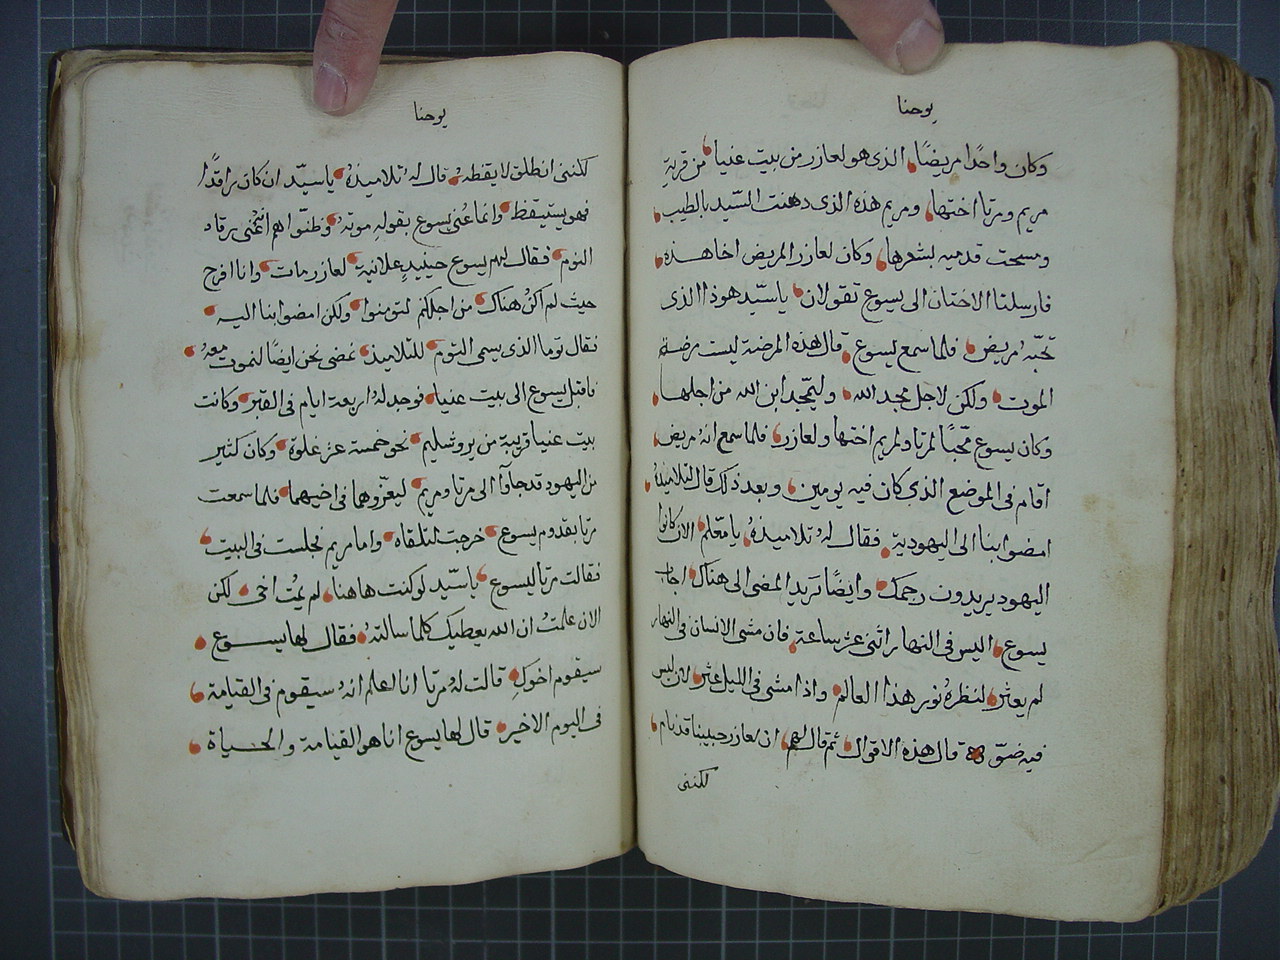 يوحنا
وكان واحدًا مريضًا الذى هو لعازر من بيت عنيا من قرية
مريم ومرتا اختها ومريم هذه الذى دهنت السّيد بالطيب
ومسحت قدميه بشعرها وكان لعازر المريض اخا هذه
فارسلتا الاختان الى يسوع تقولان ياسيّد هوذا الذى
تحبّه مريض فلما سمع يسوع قال هذه المرضة ليست مرضة
الموت ولكن لاجل مجد الله وليتمجد ابن الله من اجلها
وكان يسوع محّبًا لمرتا ولمريم اختها ولعازر فلما سمع انه مريض
اقام فى الموضع الذى كان فيه يومين وبعد ذلك قال لتلاميذهُ
امضوا بنا الى اليهودية فقال لهُ تلاميذهُ يا معّلم الان كانوا
اليهود يريدون رجمك وايضًا تريد المضى الى هناك اجاب
يسوع اليس فى النهار اثنى عشر ساعة فان مشى الانسان فى النهار
لم يعثر لنظرهُ نور هذا العالم واذا مشى فى الليل عثر لان ليس
فيه ضوّ قال هذه الاقوال ثم قال لهم ان لعازر حبيبنا قد نام
لكننى
يوحنا
لكننى انطلق لايقظه قال لهُ تلاميذهُ ياسيّد ان كان راقدًا
فهو يستيقظ وانما عُنى يسوع بقوله موته وظنّوا هم انهُ عنى رقاد
النوم فقال لهم يسوع حينيدٍ علانية لعازر مات وانا افرح
حيث لم اكنُ هناك من اجلكم لتومنوا ولكن امضوا بنا اليه
فقال توما الذى يسمى التوم للتلاميذ نمضى نحن ايضًا لنموت معهُ
فاقبل يسوع الى بيت عنيا فوجد لهُ اربعة ايام فى القبر وكانت
بيت عنيا قريبة من يروشليم نحو خمسة عشر غلوة وكان كثير
من اليهود قد جاوآ الى مرتا ومريم ليعزّوهما فى اخيهما فلما سمعت
مرتا بقدوم يسوع خرجت لتلقاه واما مريم فجلست فى البيت
فقالت مرتا ليسوع ياسيّد لو كنت هاهنا لم يمُت اخى لكن
الان علمتُ ان الله يعطيك كلما سالتهُ فقال لها يسوع
سيقوم اخوكِ قالت لهُ مرتا انا اعلم انهُ سيقوم فى القيامة
فى اليوم الاخير قال لها يسوع انا هو القيامة والحياة